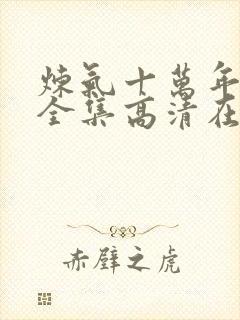 煉氣十萬年
全集高清在
赤壁之虎